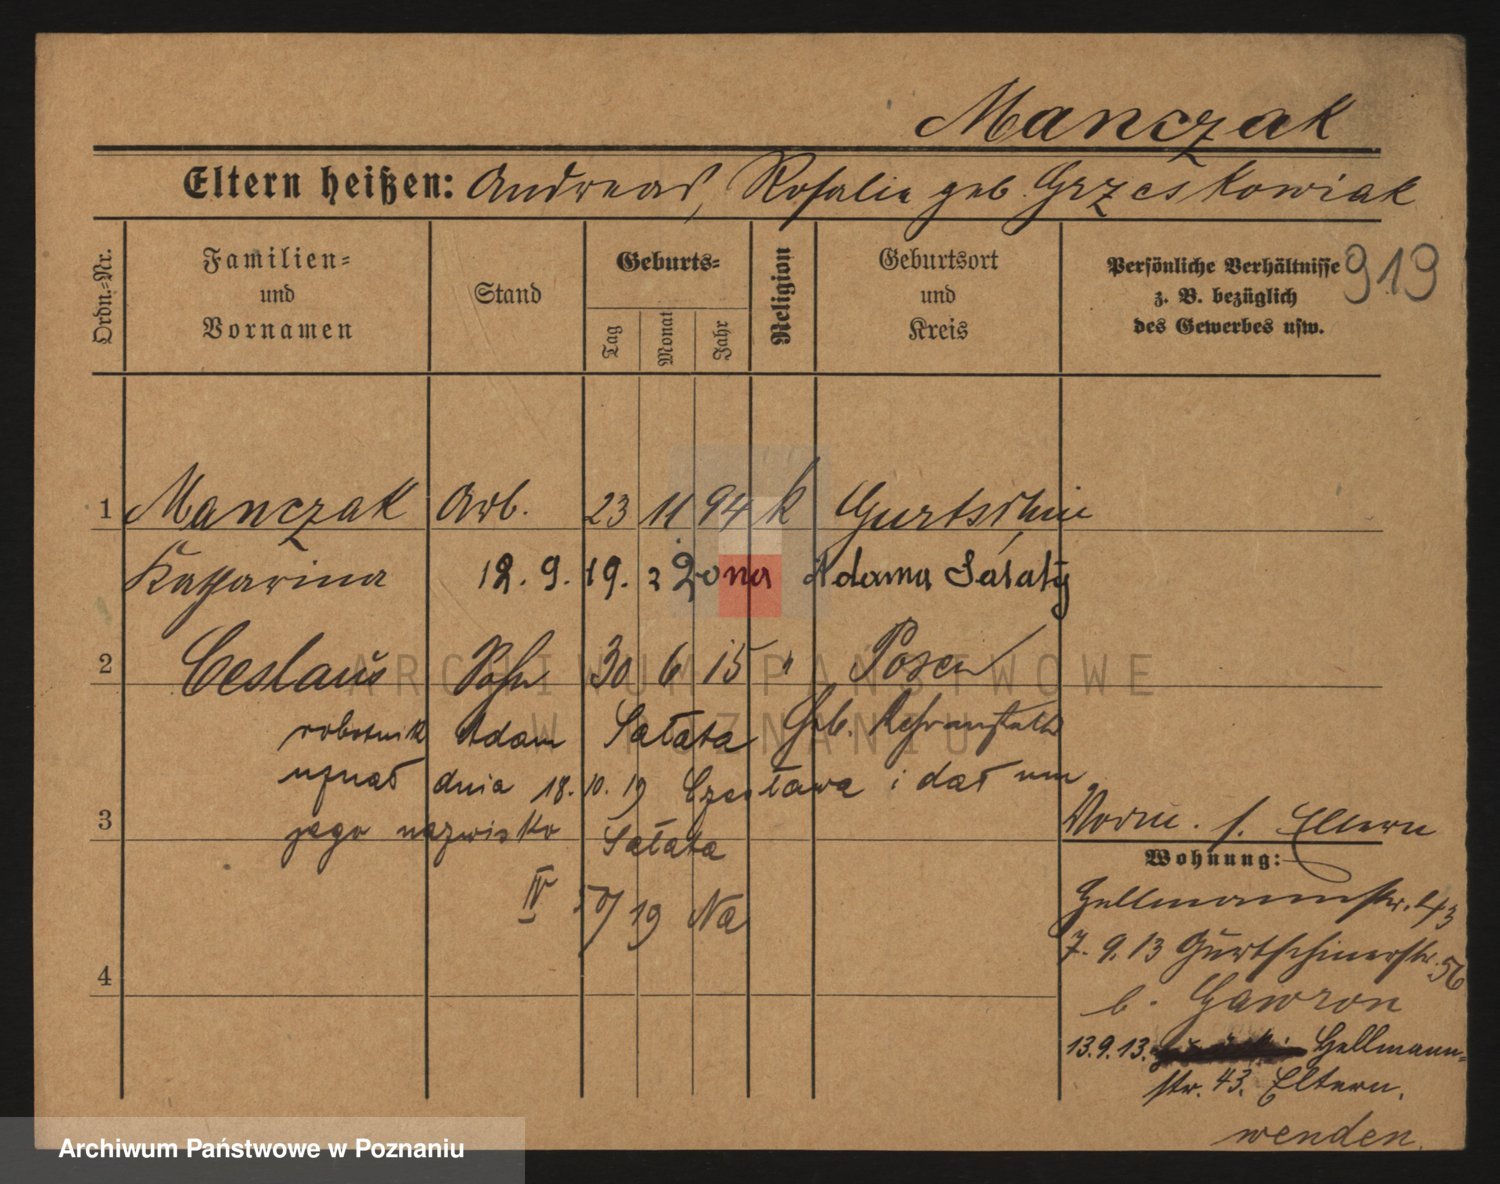 Manczak
Eltern heißen: Andreas, Rosalie geb. Grzeskowiak
919
Ordn.-Nr.
Familien-
und
Vornamen
Stand
Geburts-
Tag
Monat
Jahr
Religion
Geburtsort
und
Kreis
Persönliche Verhältnisse
z. B. bezüglich
des Gewerbes usw.
1 Manczak Arb. 23 11 94 k Gurtschin
Katharina 12. 9. 19. żona Adama Sałaty
2 Ceslaus Sohn 30 6 15 " Posen
robotnik Adam Sałata Geb.
uznał dnia 18. 10. 19 Czesława i dał mu
3 jego nazwisko Sałata
IV 50/19 Na
4
Vorm. s. Eltern
Wohnung:
Hellmannstr. 43
7. 9. 13 Gurtschinerstr. 56
b. Gawron
13. 9. 13. Hellmann-
str. 43. Eltern.
wenden.
ARCHIWUM PAŃSTWOWE
W POZNANIU
Archiwum Państwowe w Poznaniu